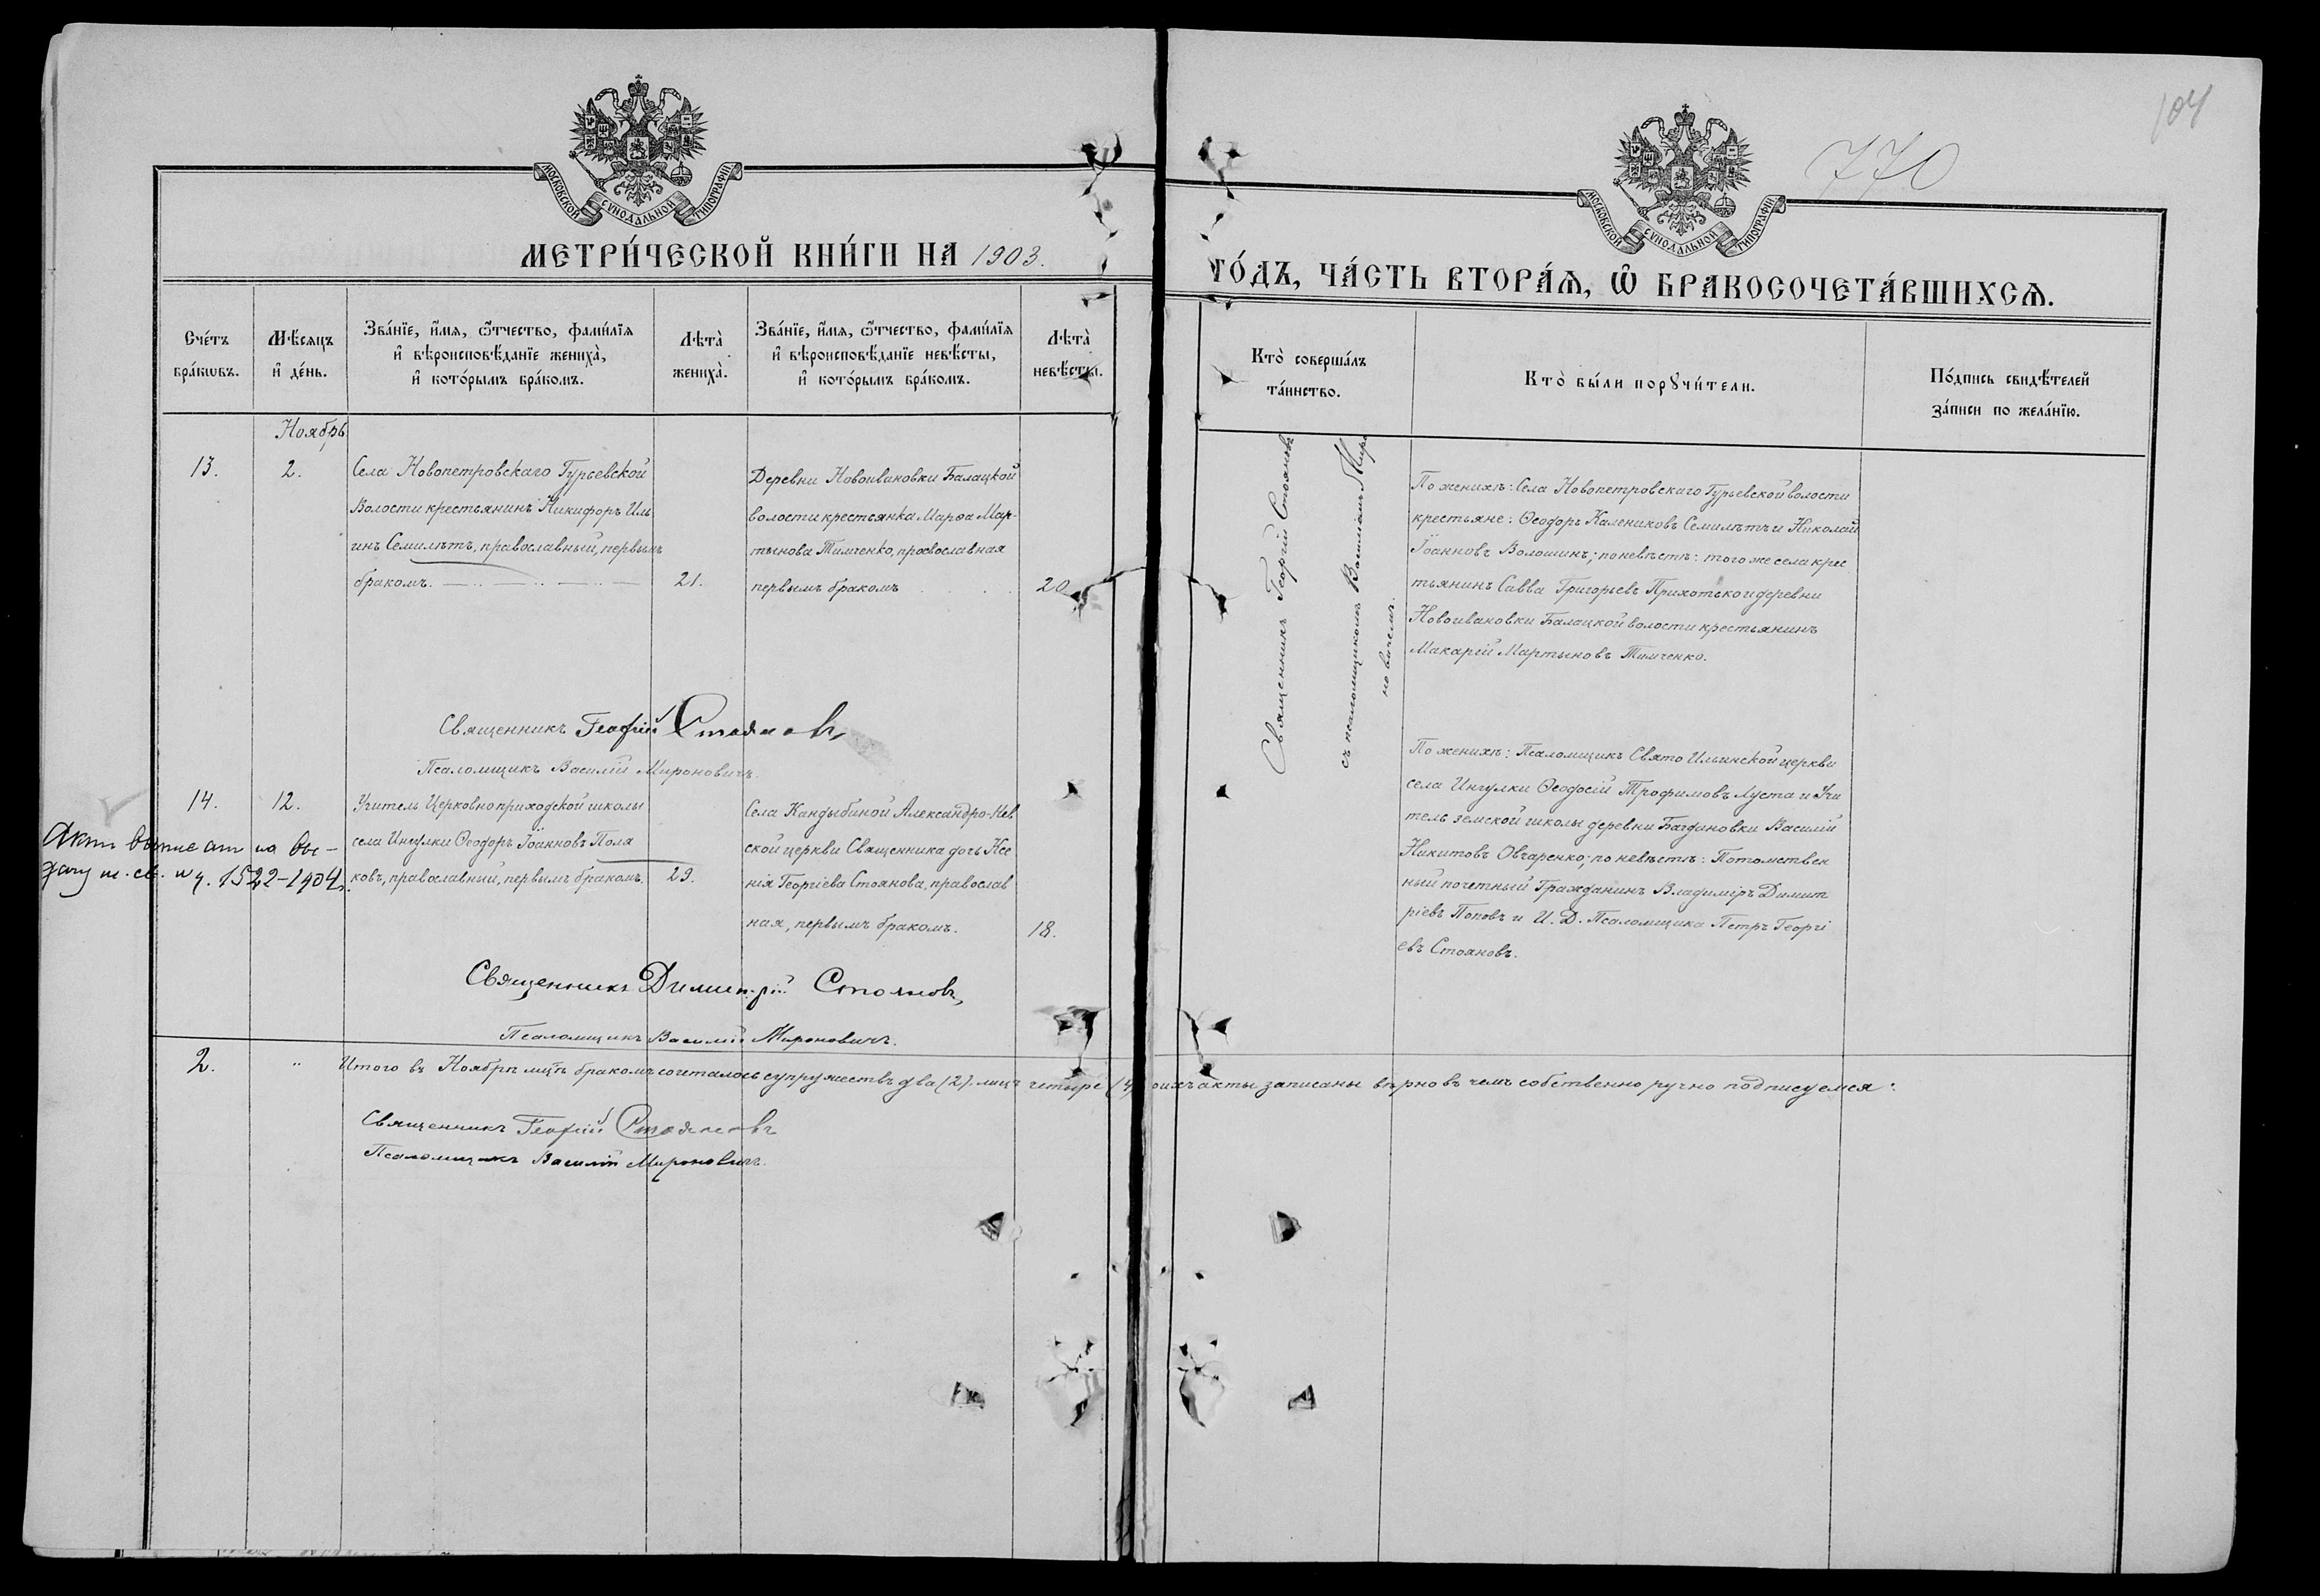 104
770
МОСКОВСКОЙ СУНОДАЛЬНОЙ ТИПОГРАФІИ
МОСКОВСКОЙ СУНОДАЛЬНОЙ ТИПОГРАФІИ
МЕТРИ́ЧЕСКОЙ КНИ́ГИ НА 1903.
ГО́ДЪ, ЧА́СТЬ ВТОРА́Ѧ, Ѿ БРАКОСОЧЕТА́ВШИХСѦ.
Сче́тъ
бра́кѡвъ.
Мѣ́сяцъ
и҆ де́нь.
Зва́нїе, и҆́мя, ѻ҆́тчество, фами́лїя
и҆ вѣроисповѣ́данїе жениха̀,
и҆ кото́рымъ бра́комъ.
Лѣта̀
жениха̀.
Зва́нїе, и҆́мя, ѻ҆́тчество, фами́лїя
и҆ вѣроисповѣ́данїе невѣ́сты,
и҆ кото́рымъ бра́комъ.
Лѣта̀
невѣ́сты.
Кто̀ соверша́лъ
та́инство.
Кто̀ бы́ли порꙋчи́тели.
По́дпись свидѣ́телей
за́писи по жела́нїю.
Ноябрь
13.
2.
Села Новопетровскаго Гурьевской
Волости крестьянинъ Никифоръ Иль
инъ Семилѣтъ, православный, первымъ
бракомъ.
21.
Деревни Новоивановки Балацкой
волости крестьянка Марѳа Мар-
тынова Тимченко, православная
первымъ бракомъ
20
Священникъ Георгій Стояновъ
съ псаломщикомъ Василіемъ Миро
новичемъ.
По женихѣ: Села Новопетровскаго Гурьевской волости
крестьяне: Ѳеодоръ Калениковъ Семилѣтъ и Николай
Іоанновъ Волошинъ; по невѣстѣ: того же села крес
тьянинъ Савва Григорьевъ Прихотько и деревни
Новоивановки Балацкой волости крестьянинъ
Макарій Мартыновъ Тимченко.
Священникъ Георгій Стояновъ
Псаломщикъ Василій Мироновичъ.
14.
12.
Учитель Церковноприходской школы
села Ингулки Ѳеодоръ Іоанновъ Поля
ковъ, православный, первымъ бракомъ.
29.
Села Кандыбиной Александро-Нев
ской церкви Священника дочь Ксе
нія Георгіева Стоянова, православ
ная, первымъ бракомъ.
18.
По женихѣ: Псаломщикъ Свято Ильинской церкви
села Ингулки Ѳеодосій Трофимовъ Луста и Учи
тель земской школы деревни Багдановки Василій
Никитовъ Овчаренко; по невѣстѣ: Потомствен
ный почетный Гражданинъ Владиміръ Димит
ріевъ Поповъ и И. Д. Псаломщика Петръ Георгі
евъ Стояновъ.
Актъ на вы-
дачу 1522-1904
Священникъ Димитрій Стояновъ,
Псаломщикъ Василій Мироновичъ.
2.
"
Итого въ Ноябрѣ мцѣ бракомъ сочеталось супружествъ два (2). лицъ четыре (4) оихъ акты записаны вѣрно въ чемъ собственно ручно подписуемся:
Священникъ Георгій Стояновъ
Псаломщикъ Василій Мироновичъ.